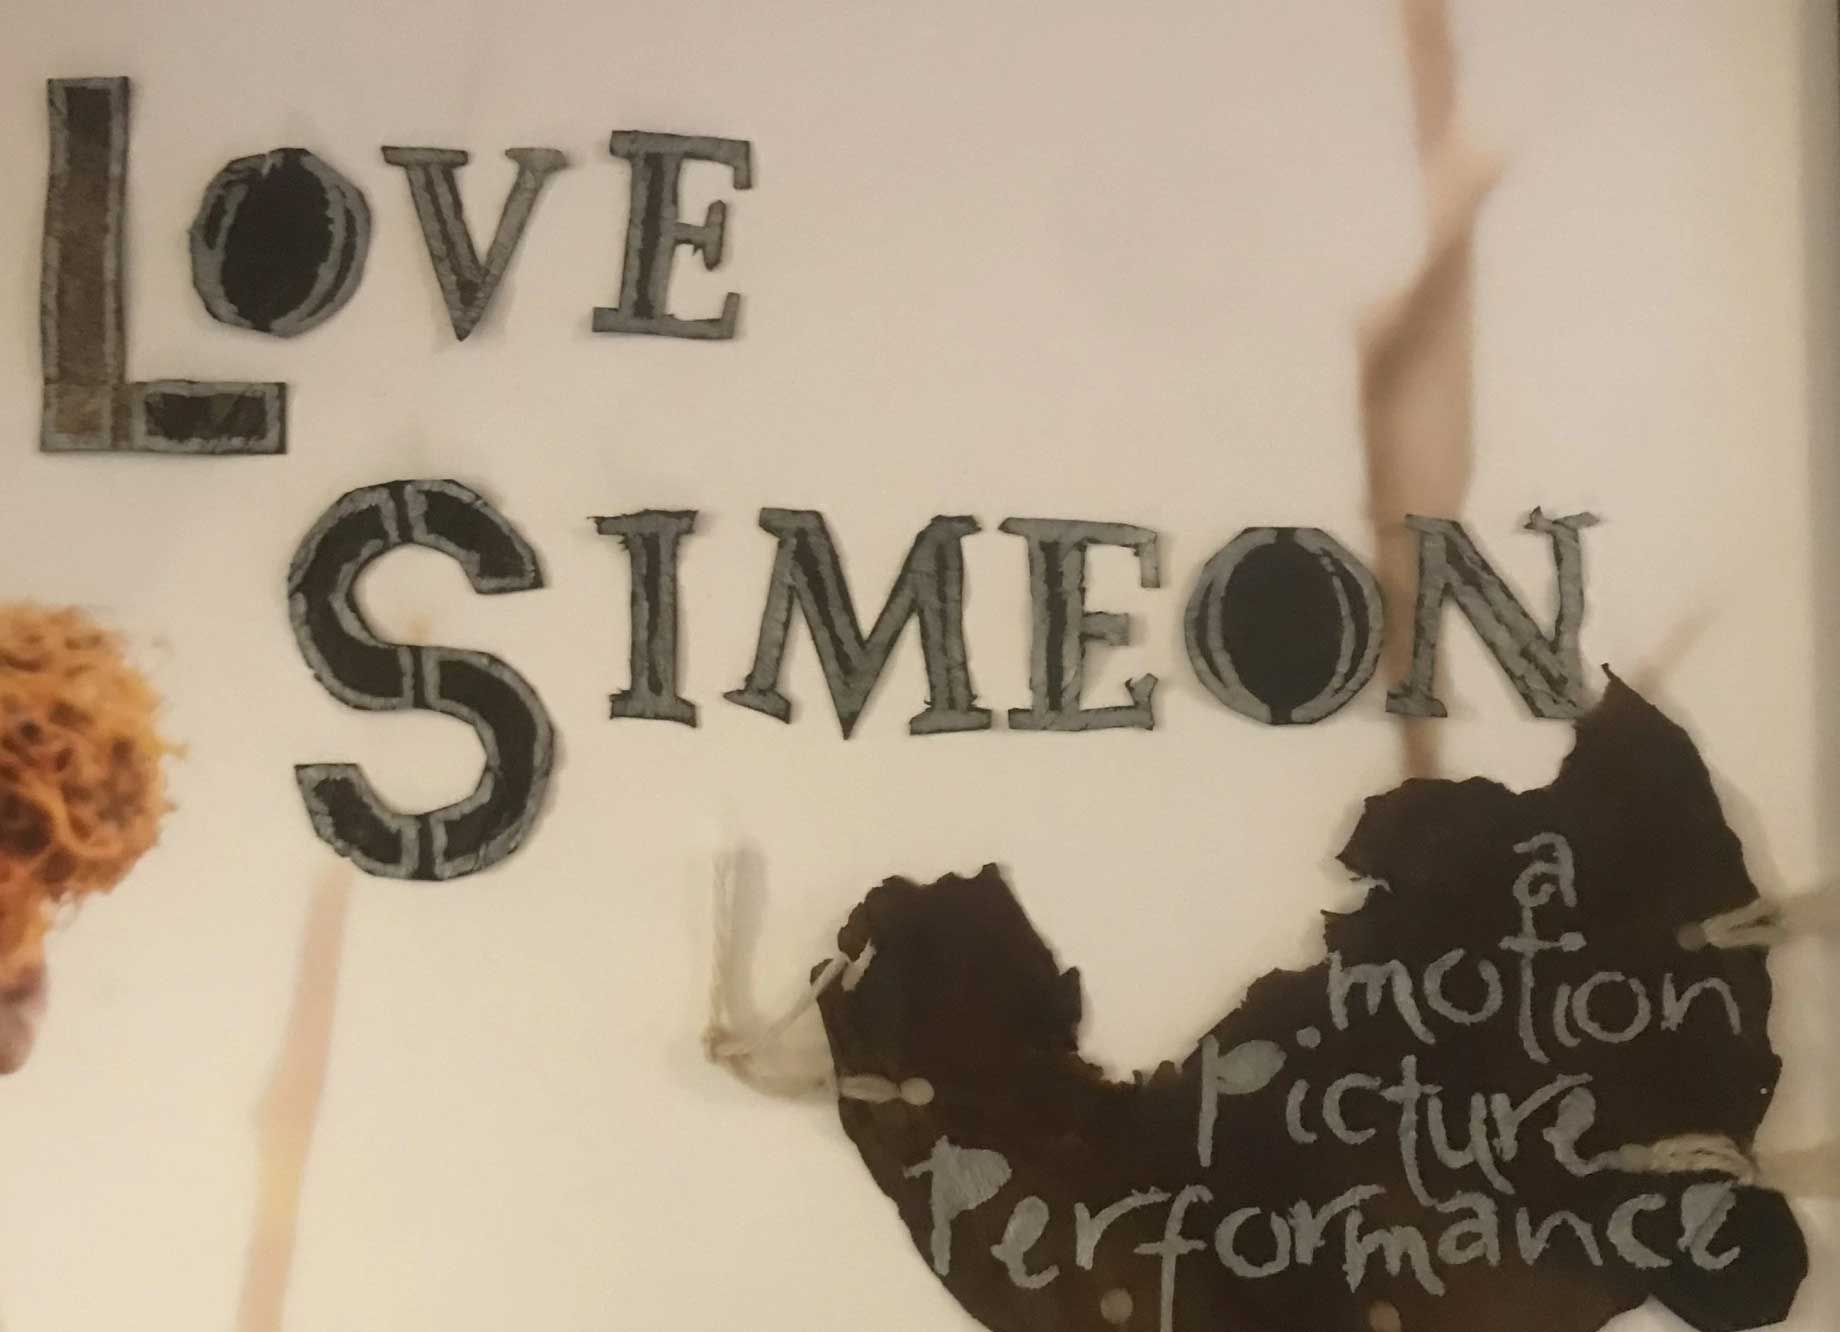 LOVE
SIMEON
a
motion
Picture
Performance